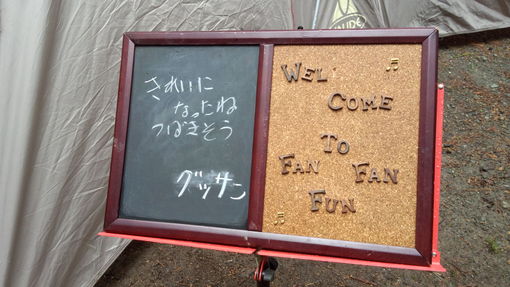 きれいに
なったね
つばきそう
グッサン
WEL
COME
TO
FAN FAN
FUN